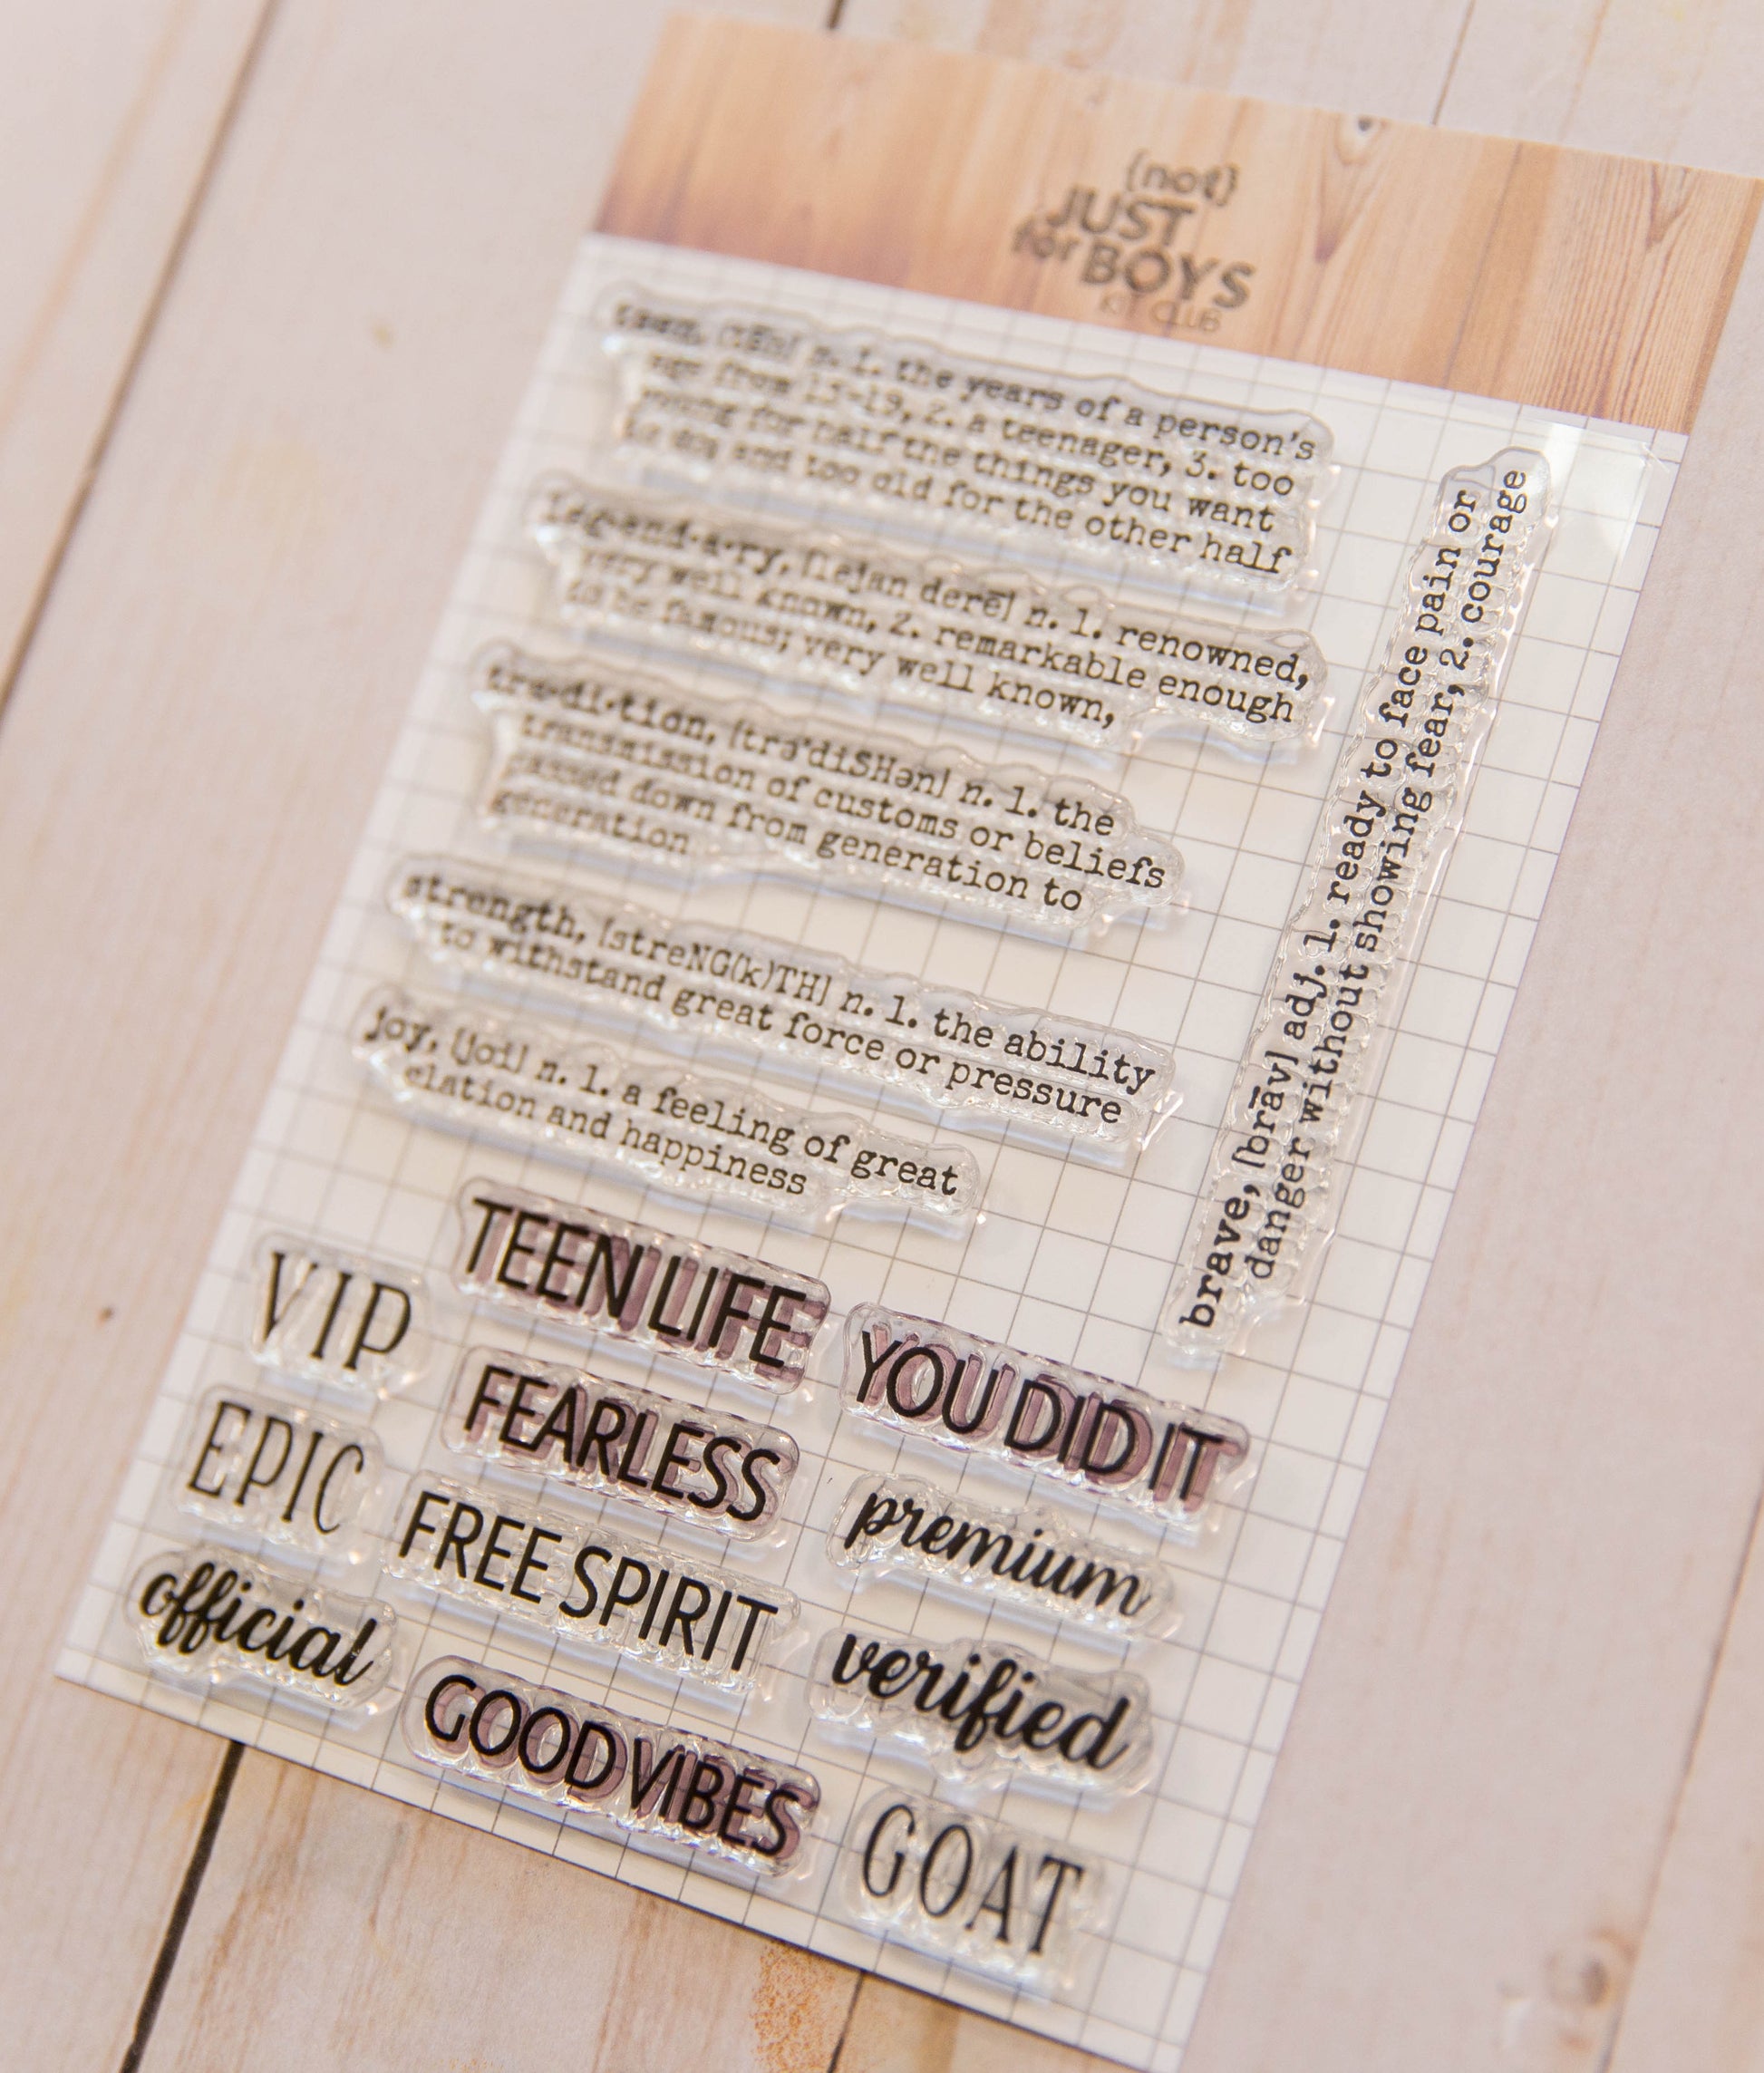 {not}
JUST
for BOYS
KIT CLUB
teen, [tēn] n. 1. the years of a person's
age from 13-19, 2. a teenager, 3. too
young for half the things you want
to do and too old for the other half
leg·end·a·ry, [lejan derē] n. 1. renowned,
very well known, 2. remarkable enough
to be famous; very well known,
tra·di·tion, [trə'diSHən] n. 1. the
transmission of customs or beliefs
passed down from generation to
generation
strength, [streNG(k)TH] n. 1. the ability
to withstand great force or pressure
joy, [joi] n. 1. a feeling of great
elation and happiness
brave, [brāv] adj. 1. ready to face pain or
danger without showing fear, 2. courage
TEEN LIFE
VIP
YOU DID IT
FEARLESS
EPIC
premium
FREE SPIRIT
official
verified
GOOD VIBES
GOAT